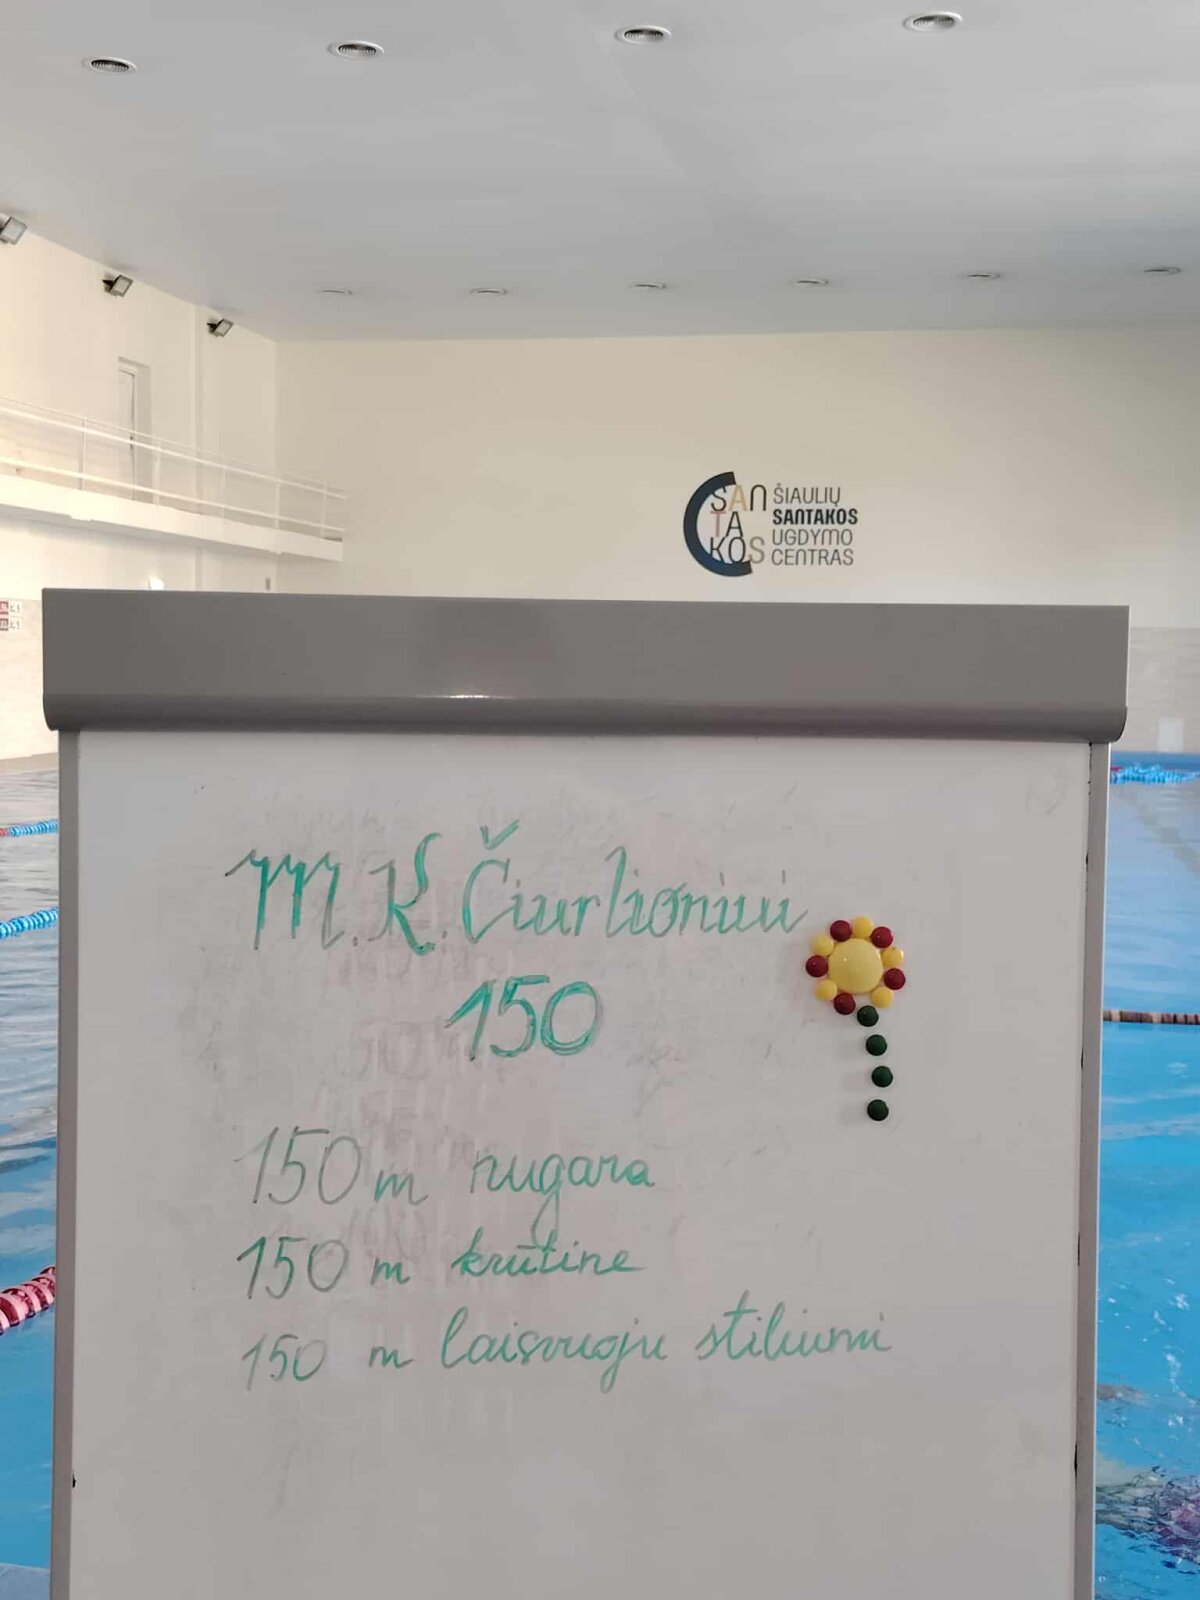 SANTAKOS
ŠIAULIŲ
SANTAKOS
UGDYMO
CENTRAS
M.K.Čiurlioniui
150
150 m nugara
150 m krūtine
150 m laisvuoju stiliumi